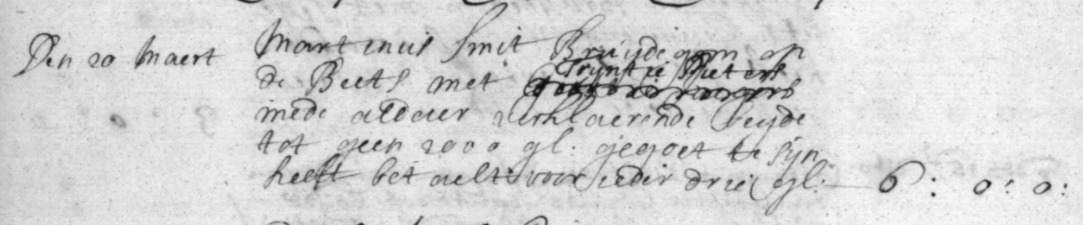 Den 20 Maert Martinus Smit Bruijdegom op
Trijntie Pieters
de Beets met
mede aldaer verklaerende beijde
tot geen 2000 gl: gegoet te sijn
heeft betaelt voor ieder drie gl: 6: 0: 0: